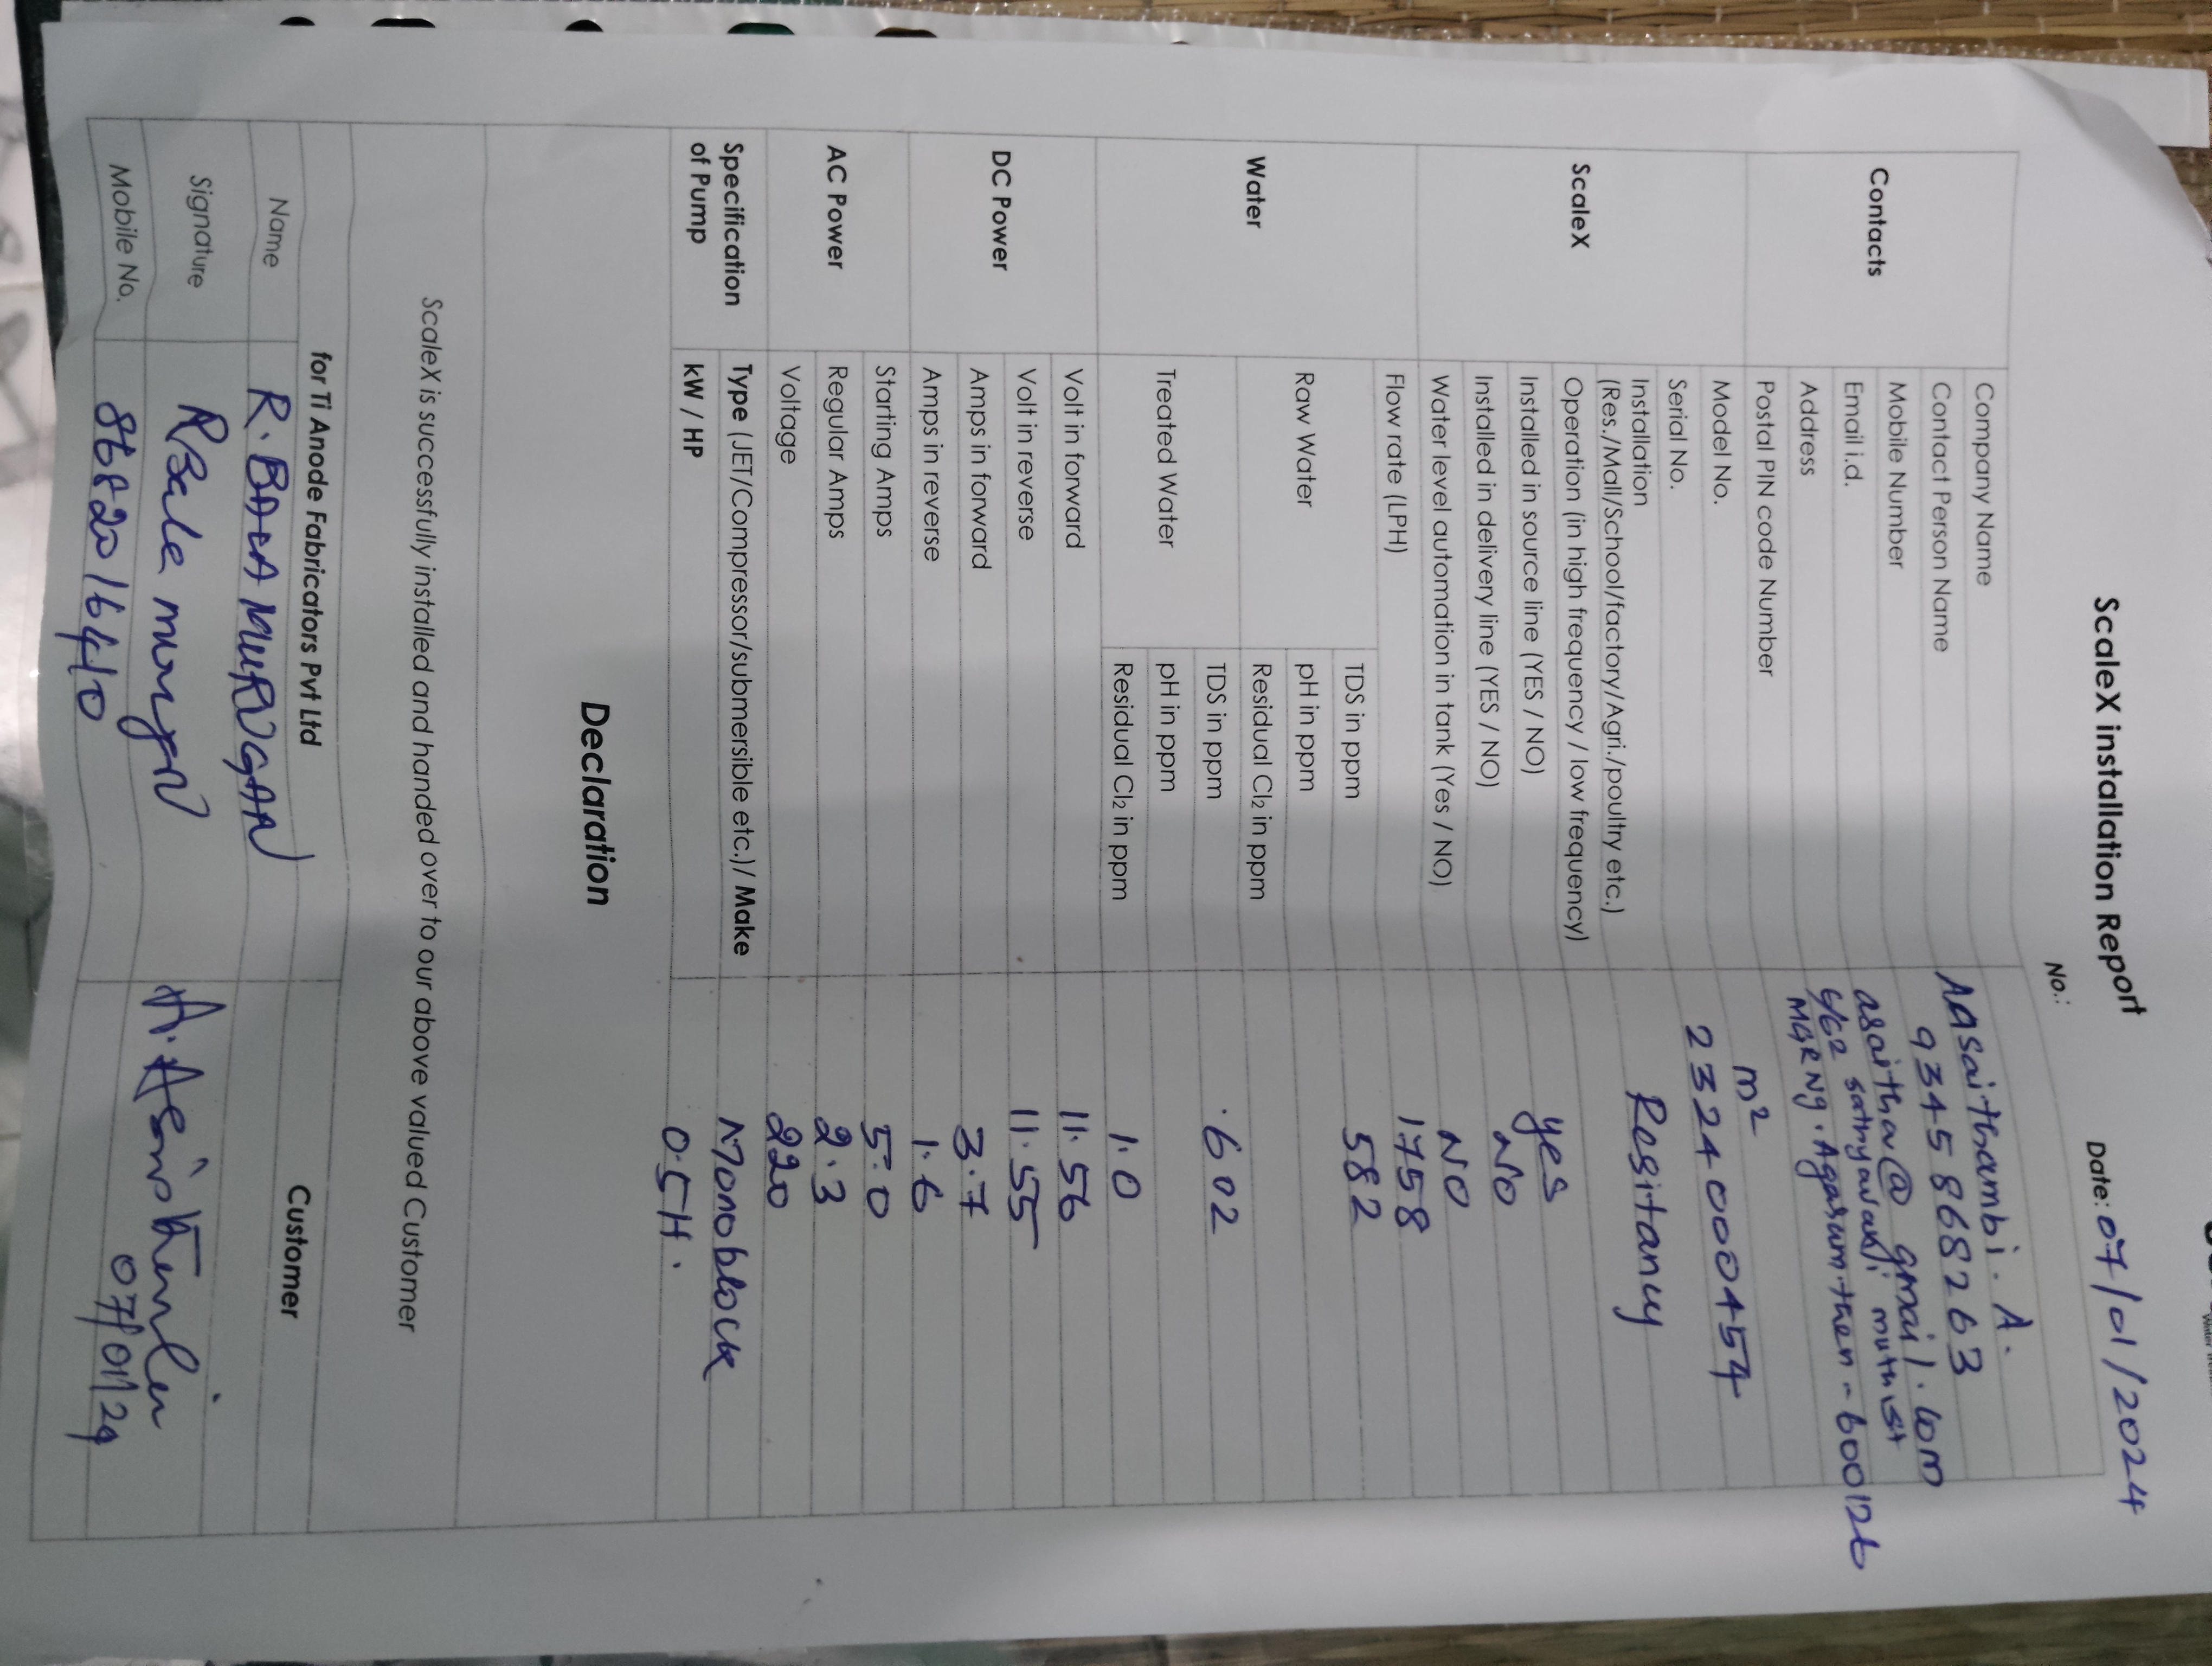 ScaleX installation Report
No.: Date: 07/01/2024
Contacts
Company Name
Contact Person Name Aasaithambi. A.
Mobile Number 9345868263
Email i.d. asaitha@gmail.com
Address
MGR Ng. Agaram.then - 600126
Postal PIN code Number
ScaleX
Model No. m²
Serial No. 23240000454
Installation
(Res./Mall/School/factory/Agri./poultry etc.) Resitancy
Operation (in high frequency / low frequency)
Installed in source line (YES / NO) yes
Installed in delivery line (YES / NO) NO
Water level automation in tank (Yes / NO) NO
Flow rate (LPH) 1758
Water
Raw Water
TDS in ppm 582
pH in ppm
Residual Cl₂ in ppm
Treated Water
TDS in ppm .602
pH in ppm
Residual Cl₂ in ppm 1.0
DC Power
Volt in forward 11.56
Volt in reverse 11.55
Amps in forward 3.7
Amps in reverse 1.6
AC Power
Starting Amps 5.0
Regular Amps 2.3
Voltage 220
Specification
of Pump
Type (JET/Compressor/submersible etc.)/ Make Monoblock
kW / HP 0.5H.
Declaration
ScaleX is successfully installed and handed over to our above valued Customer
for Ti Anode Fabricators Pvt Ltd Customer
Name R. BALA MURUGAN
Signature
Mobile No. 07/01/24